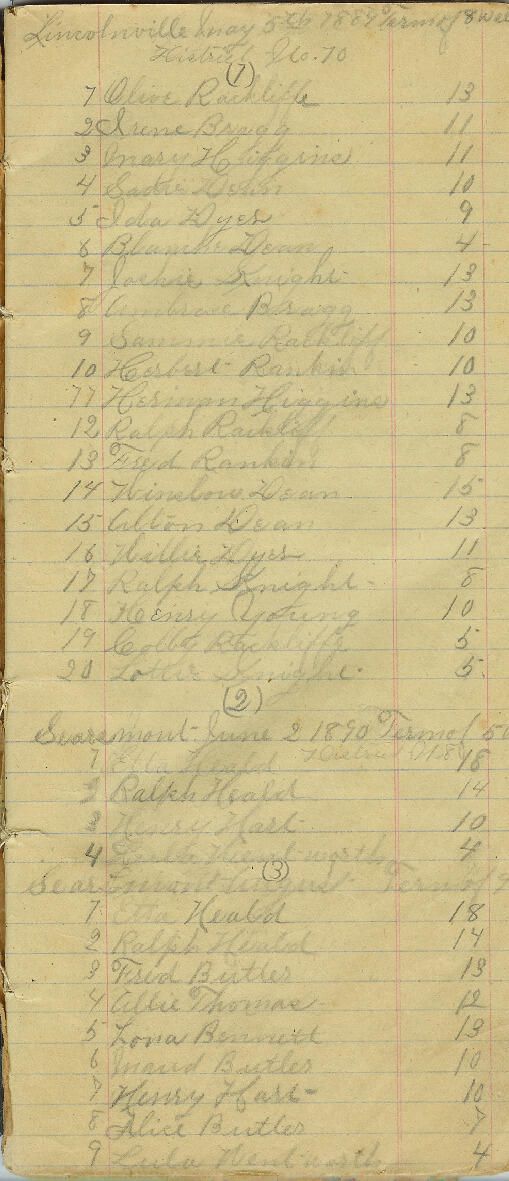 Lincolnville May 5th 1889 Term of 8 wee
District No. 70
(1)
1 Olive Rackliffe 13
2 Irene Bragg 11
3 Mary Higgins 11
4 Sadie Dean 10
5 Ida Dyer 9
6 Blanche Dean 4
7 Jackie Knight 13
8 Ambrose Bragg 13
9 Sammie Rackliff 10
10 Herbert Rankin 10
11 Herman Higgins 13
12 Ralph Rackliff 8
13 Fred Rankin 8
14 Winslow Dean 15
15 Alton Dean 13
16 Willie Dyer 11
17 Ralph Knight 8
18 Henry Young 10
19 Colby Rackliffe 5
20 Lottie Knight. 5.
(2)
Searsmont June 2 1890 Term of 50
District
1 Etta Heald 18
2 Ralph Heald 14
3 Henry Hart 10
4 Wentworth 4
(3)
Searsmont August Term of 9
1 Etta Heald 18
2 Ralph Heald 14
3 Fred Butler 13
4 Allie Thomas 12
5 Lona Bennett 13
6 Maud Butler 10
7 Henry Hart 10
8 Alice Butler 7
9 Lula Wentworth 4